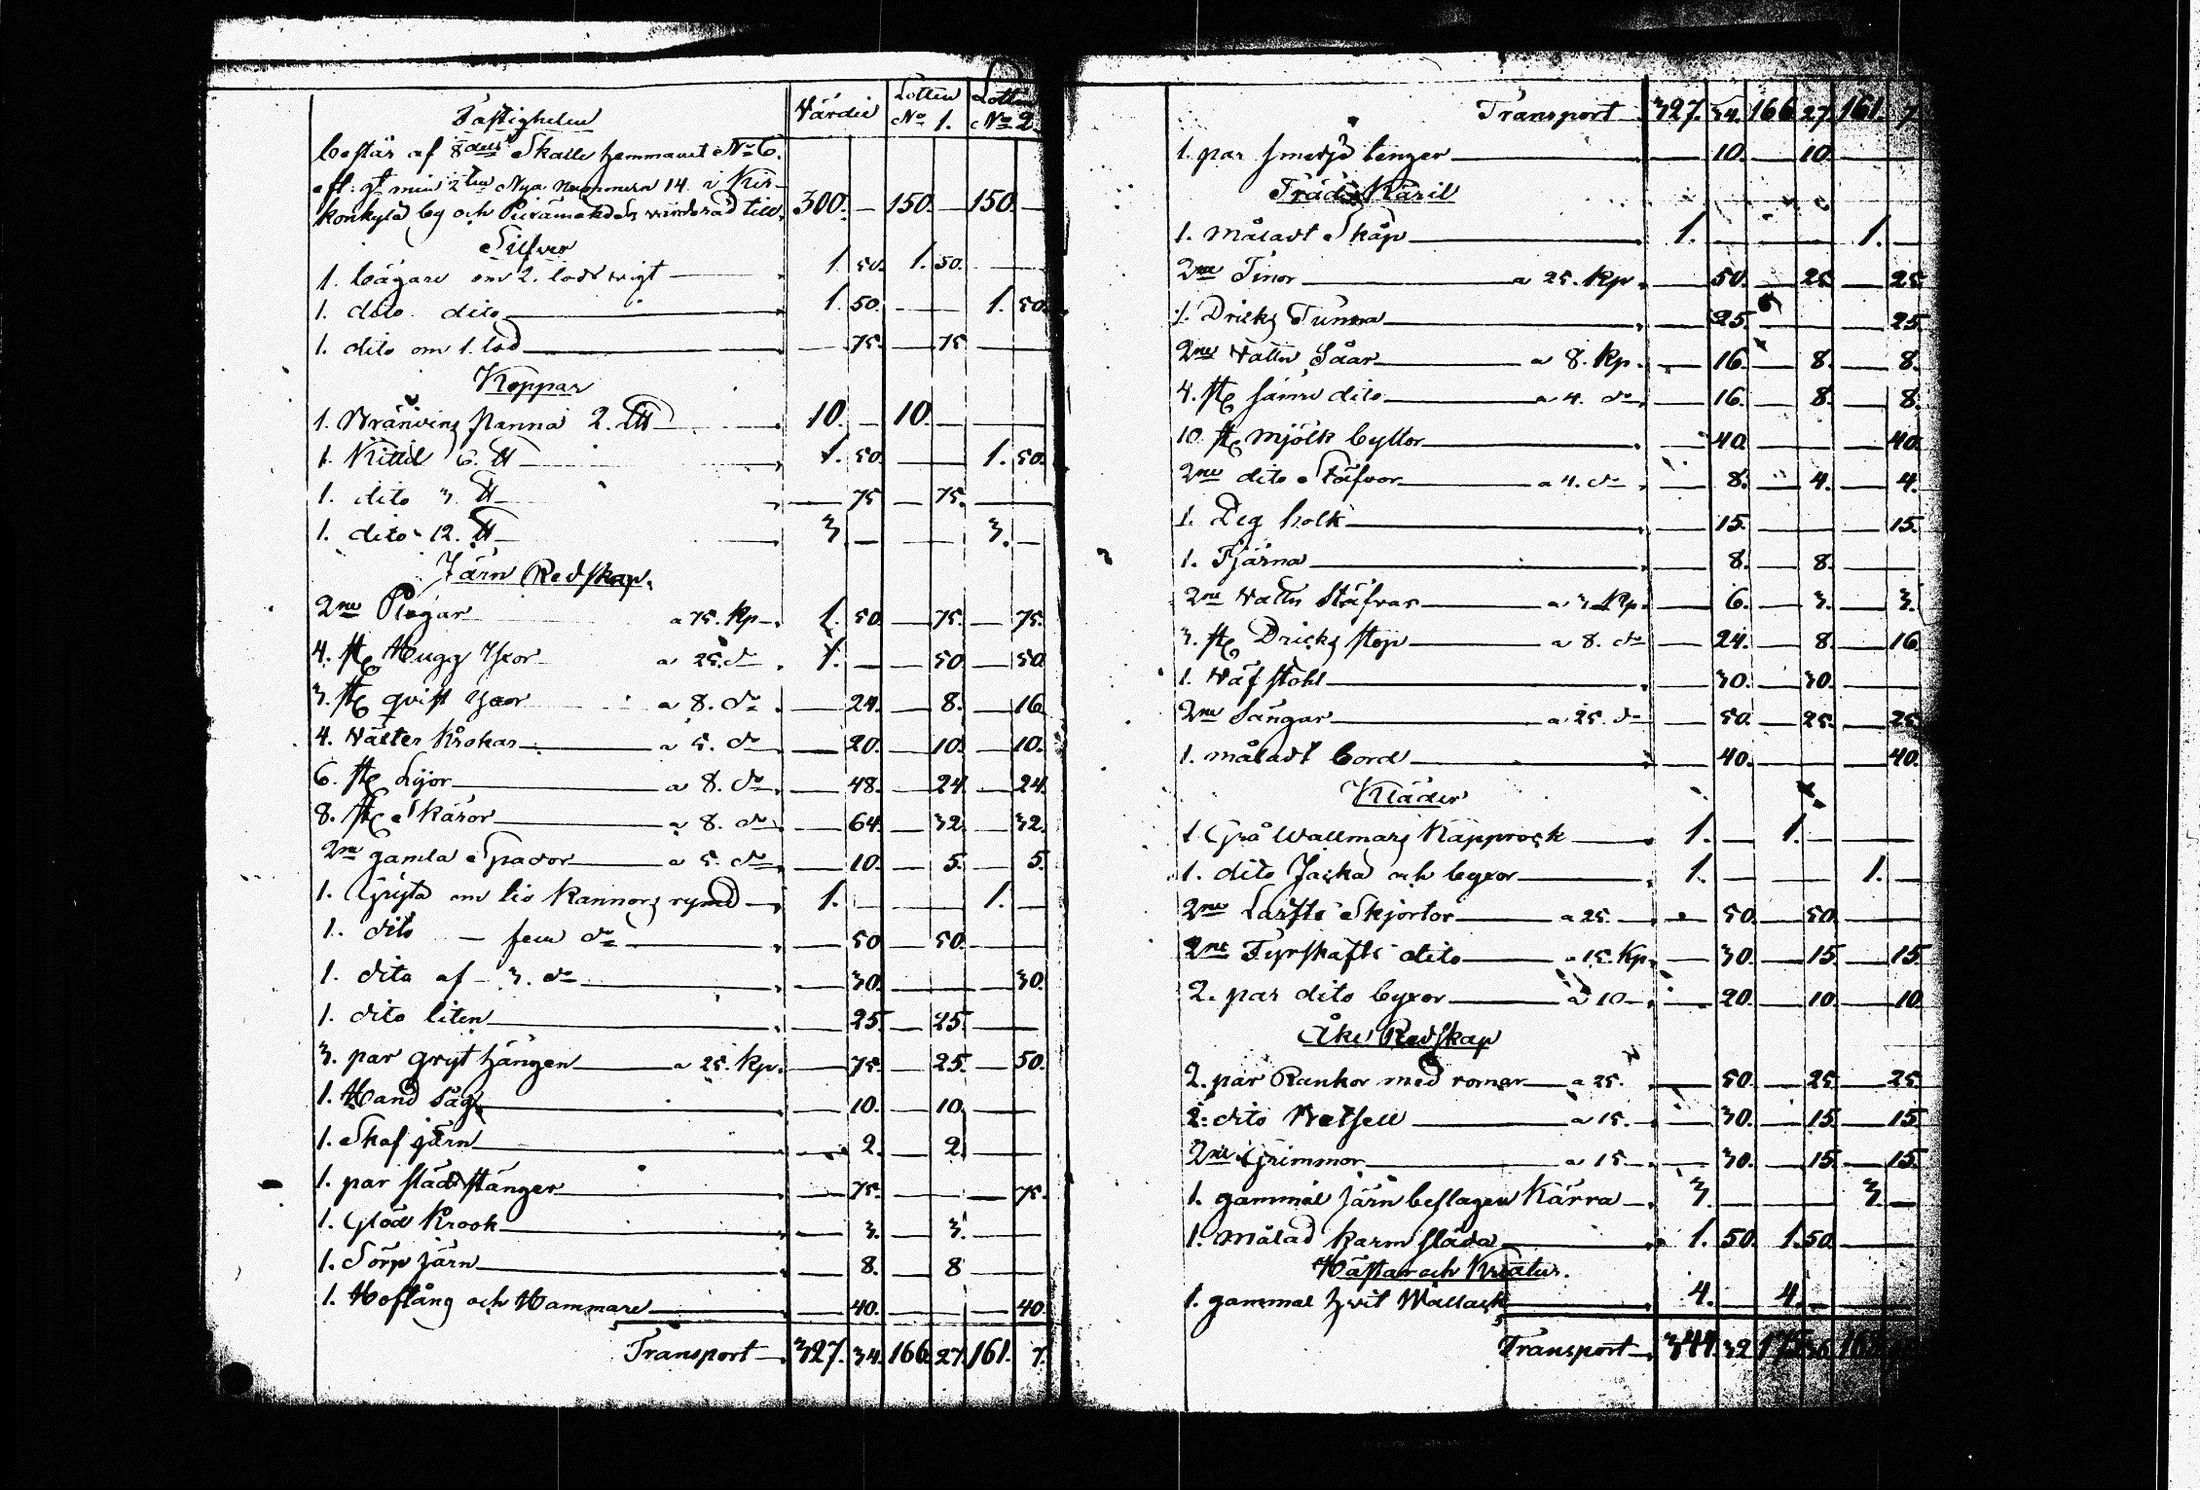 Fastigheten Värdie Lotten No 1. Lotten No 2.
består af 8dels Skatte hemmanet No 6.
min Nya Nummern 14. i Kir-
konkylä by och värderad till, 300. — 150. — 150. —
Silfver
1. bägare om 2. lods wigt — 1. 50. 1. 50. — —
1. dito dito — 1. 50. — — 1. 50.
1. dito om 1. lod — — 75. — 75. — —
Koppar
1. Bränvins Panna 2. L℔ 10. — 10. — — —
1. Kittil 6. ℔ 1. 50. — — 1. 50.
1. dito 3. ℔ — 75 — 75. — —
1. dito 12. ℔ 3. — — — 3. —
Järn Redskap.
2ne Plogar a 75. Kp. 1. 50. — 75. — 75.
4. st. Hugg Yxor a 25. do 1. — — 50. — 50
3. st. qvist yxor a 8. do — 24. — 8. — 16
4. Wälter Krokar a 5. do — 20. — 10. — 10.
6. st. Lijor a 8. do — 48. — 24. — 24.
8. st. Skäror a 8. do — 64. — 32. — 32.
2ne gamla Spador a 5. do — 10. — 5. 5.
1. Gryta om tio Kannors rymd 1. — — — 1. —
1. dito — fem do — 50 — 50. — —
1. dito af 3. do — 30. — — — 30.
1. dito liten — 25. — 25. — —
3. par gryt hängen a 25. Kp. — 75. — 25. — 50.
1. Hand såg — 10. — 10. — —
1. Skaf järn — 2. — 2. — —
1. par städ stänger — 75. — — — 75.
1. Glöd Krook — 3. — 3. — —
1. Sörp järn — 8. — 8 — —
1. Hoftång och Hammare — 40. — — — 40.
Transport 327. 34. 166. 27. 161. 7.
Transport 327. 34. 166. 27. 161. 7.
1. par smedje tenger — 10. — 10. — —
Träd Käril
1. måladt Skåp 1. — — — 1. —
2ne Tinor a 25. Kp. — 50. — 25. — 25.
1. Dricks Tunna — 25. — — — 25.
2ne Vattu Såar a 8. Kp. — 16. — 8. — 8.
4. st. sämre dito a 4. do — 16. — 8. — 8.
10. st. mjölk byttor — 40. — — — 40.
2ne dito Stäfvor a 4. do — 8. — 4. — 4.
1. Deg holk — 15. — — — 15.
1. Tjärna — 8. — 8. — —
2ne Vattu Stäfvar a 3 Kp. — 6. — 3. — 3.
3. st. Dricks stop a 8. do — 24. — 8. — 16
1. Wäf stohl — 30. — 30. — —
2ne Sängar a 25. do — 50. — 25. — 25
1. måladt bord — 40. — — — 40.
Kläder
1 Grå Wallmars Kapprock 1. — 1. — —
1. dito Jacka och byxor 1. — — — 1. —
2ne Lärfts Skjortor a 25. — 50. — 50. — —
2ne Fyrskafts dito a 15. Kp. — 30. — 15. — 15.
2. par dito byxor a 10 — 20. — 10. — 10.
Åke Redskap
2. par Rankor med romor a 25. — 50. — 25. — 25.
2. dito Betsell a 15. — 30. — 15. — 15.
2ne Grimmor a 15 — 30. — 15. — 15.
1. gammal järn beslagen Kärra 3. — — — 3. —
1. målad karm släda 1. 50. 1. 50. — —
Hästar och Kreatur.
1. gammal hvit Wallack 4. — 4. — —
Transport 344. 32